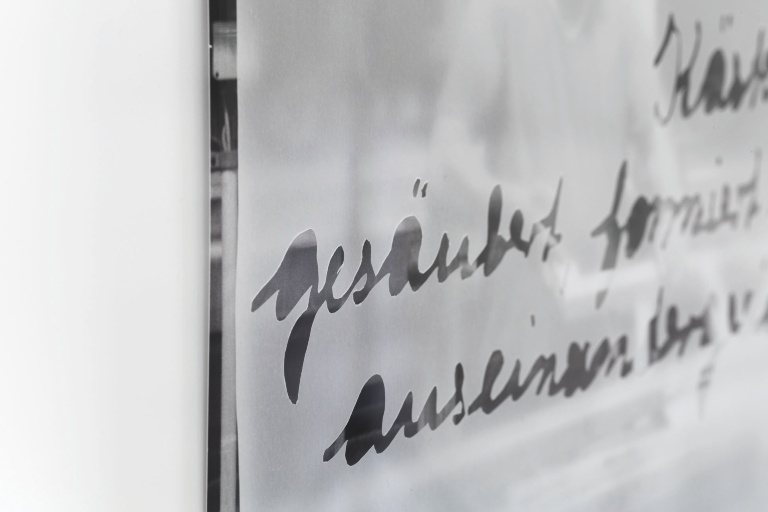 gesäubert formiert
auseinander